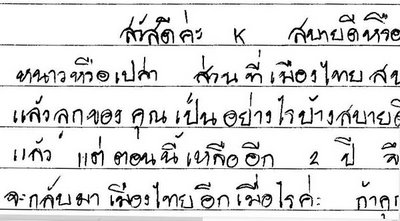 สวัสดีค่ะ K สบายดีหรือ
หนาวหรือเปล่า ส่วนที่เมืองไทย
แล้วลูกของคุณเป็นอย่างไรบ้างสบายดี
แล้ว แต่ตอนนี้เหลืออีก 2 ปี
จะกลับมาเมืองไทยอีกเมื่อไรค่ะ ถ้า